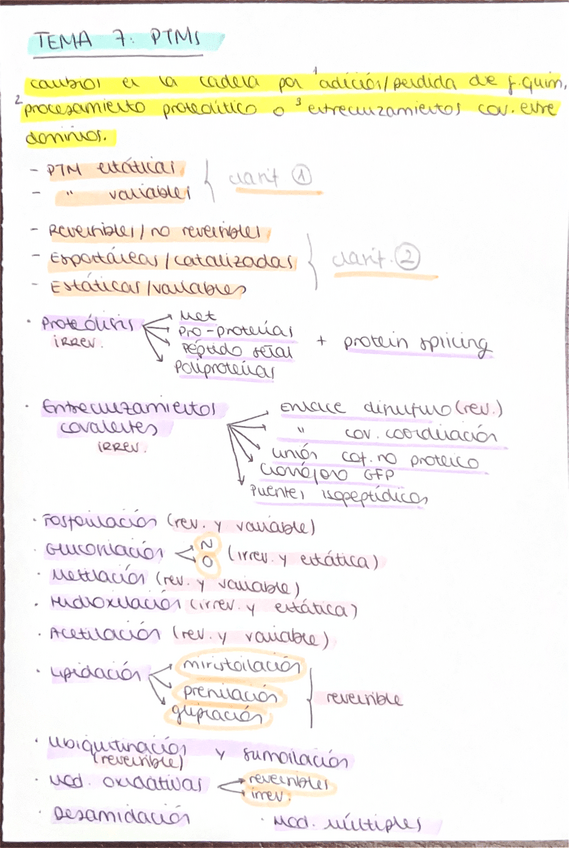 TEMA 7: PTMs
cambios en la cadena por ¹adición/perdida de g. quím,
²procesamiento proteolítico o ³entrecruzamientos cov. entre
dominios.
- PTM estáticas
- " variables
clasif ①
- Reversibles/no reversibles
- Espontáneas/catalizadas
- Estáticas/variables
clasif. ②
· Proteólisis
irrev.
Met
Pro-proteínas
Péptido señal
Poliproteínas
+ protein splicing
· Entrecruzamientos
covalentes
irrev.
Enlace disulfuro (rev.)
" cov. coordinación
unión cof. no proteico
Cromóforo GFP
Puentes isopeptídicos
· Fosforilación (rev. y variable)
· Glucosilación
N
O
(irrev. y estática)
· Metilación (rev. y variable)
· Hidroxilación (irrev. y estática)
· Acetilación (rev. y variable)
· Lipidación
miristoilación
prenilación
glipiación
reversible
· Ubiquitinación y sumoilación
(reversible)
· Mod. oxidativas
reversibles
irrev.
· Desamidación
· Mod. múltiples